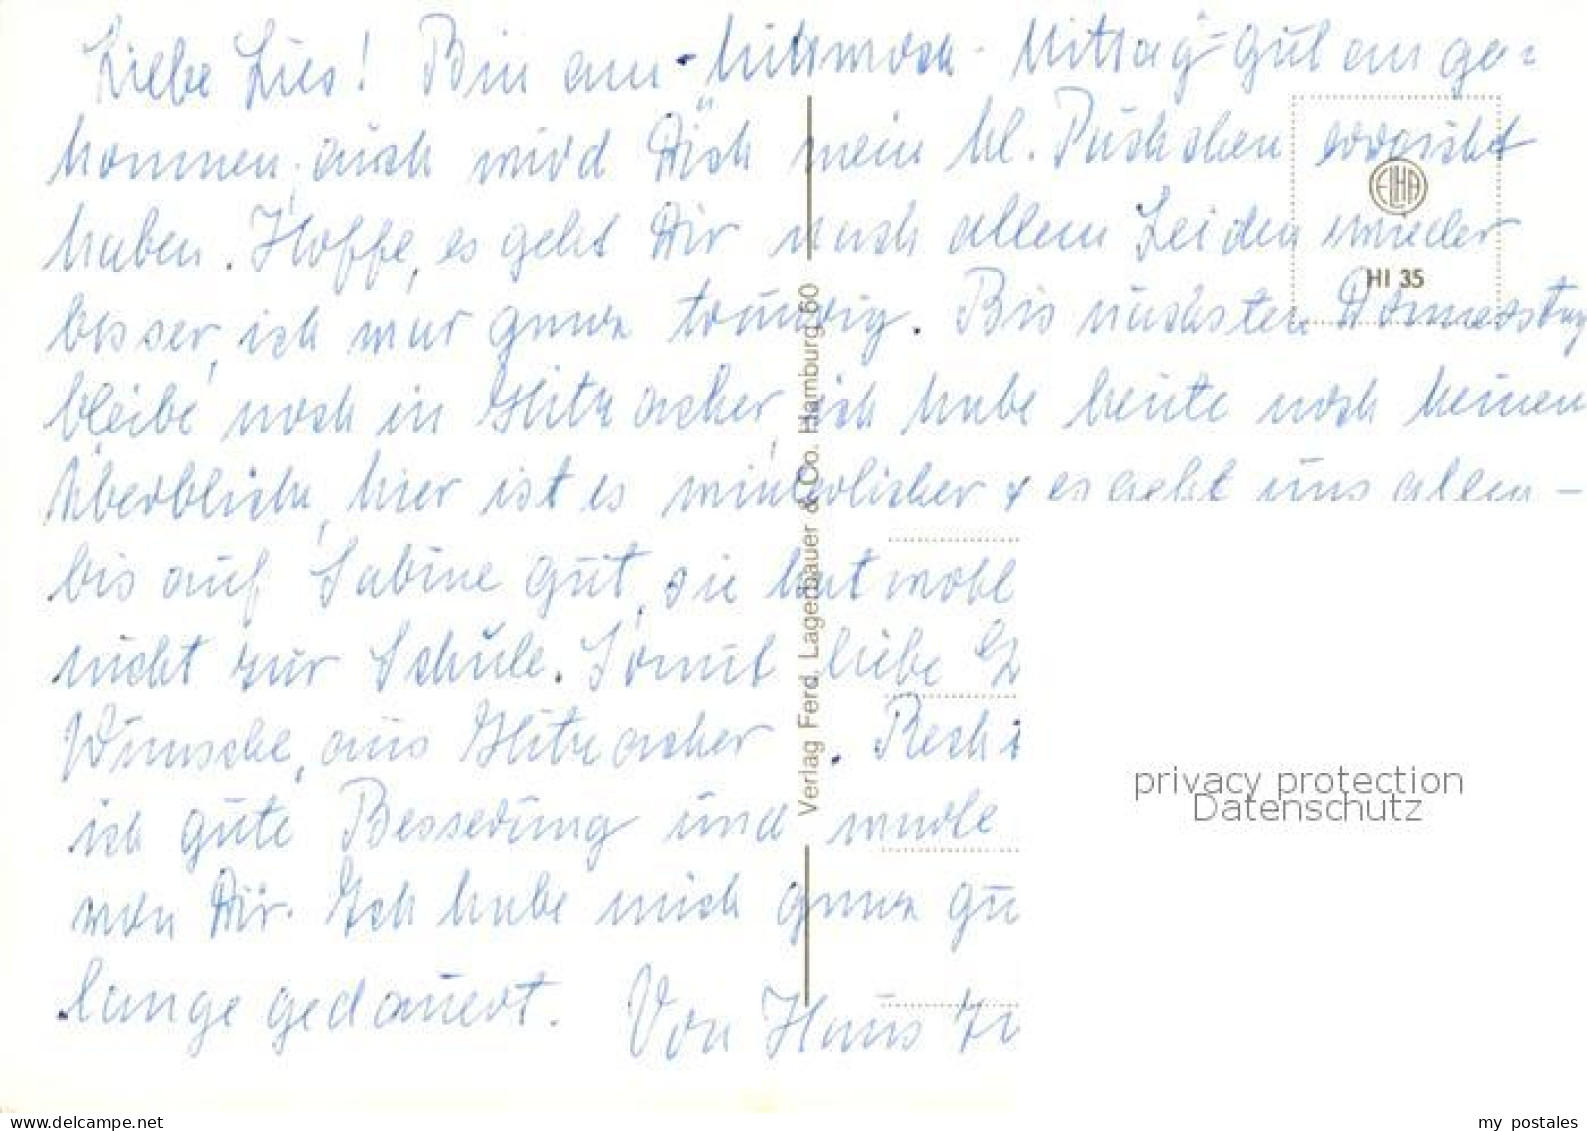 Liebe Lies! Bin am Mittwoch-Mittag gut ange=
kommen, auch wird Dich mein kl. Päckchen erreicht
haben. Hoffe, es geht Dir nach allem Leiden wieder
besser, ich war ganz traurig. Bis nächsten Donnerstag
bleibe noch in Hitzacker, ich habe heute noch keinen
Überblick, hier ist es winterlicher + es geht uns allen –
bis auf Sabine gut, sie hat wohl
nicht zur Schule. Somit liebe
Wünsche, aus Hitzacker. Recht
ich gute Besserung und
von Dir. Ich habe mich ganz gu
lange gedauert. Von Haus zu
HI 35
Verlag Ferd. Lagerbauer & Co. Hamburg 60
privacy protection
Datenschutz
delcampe.net
my postales